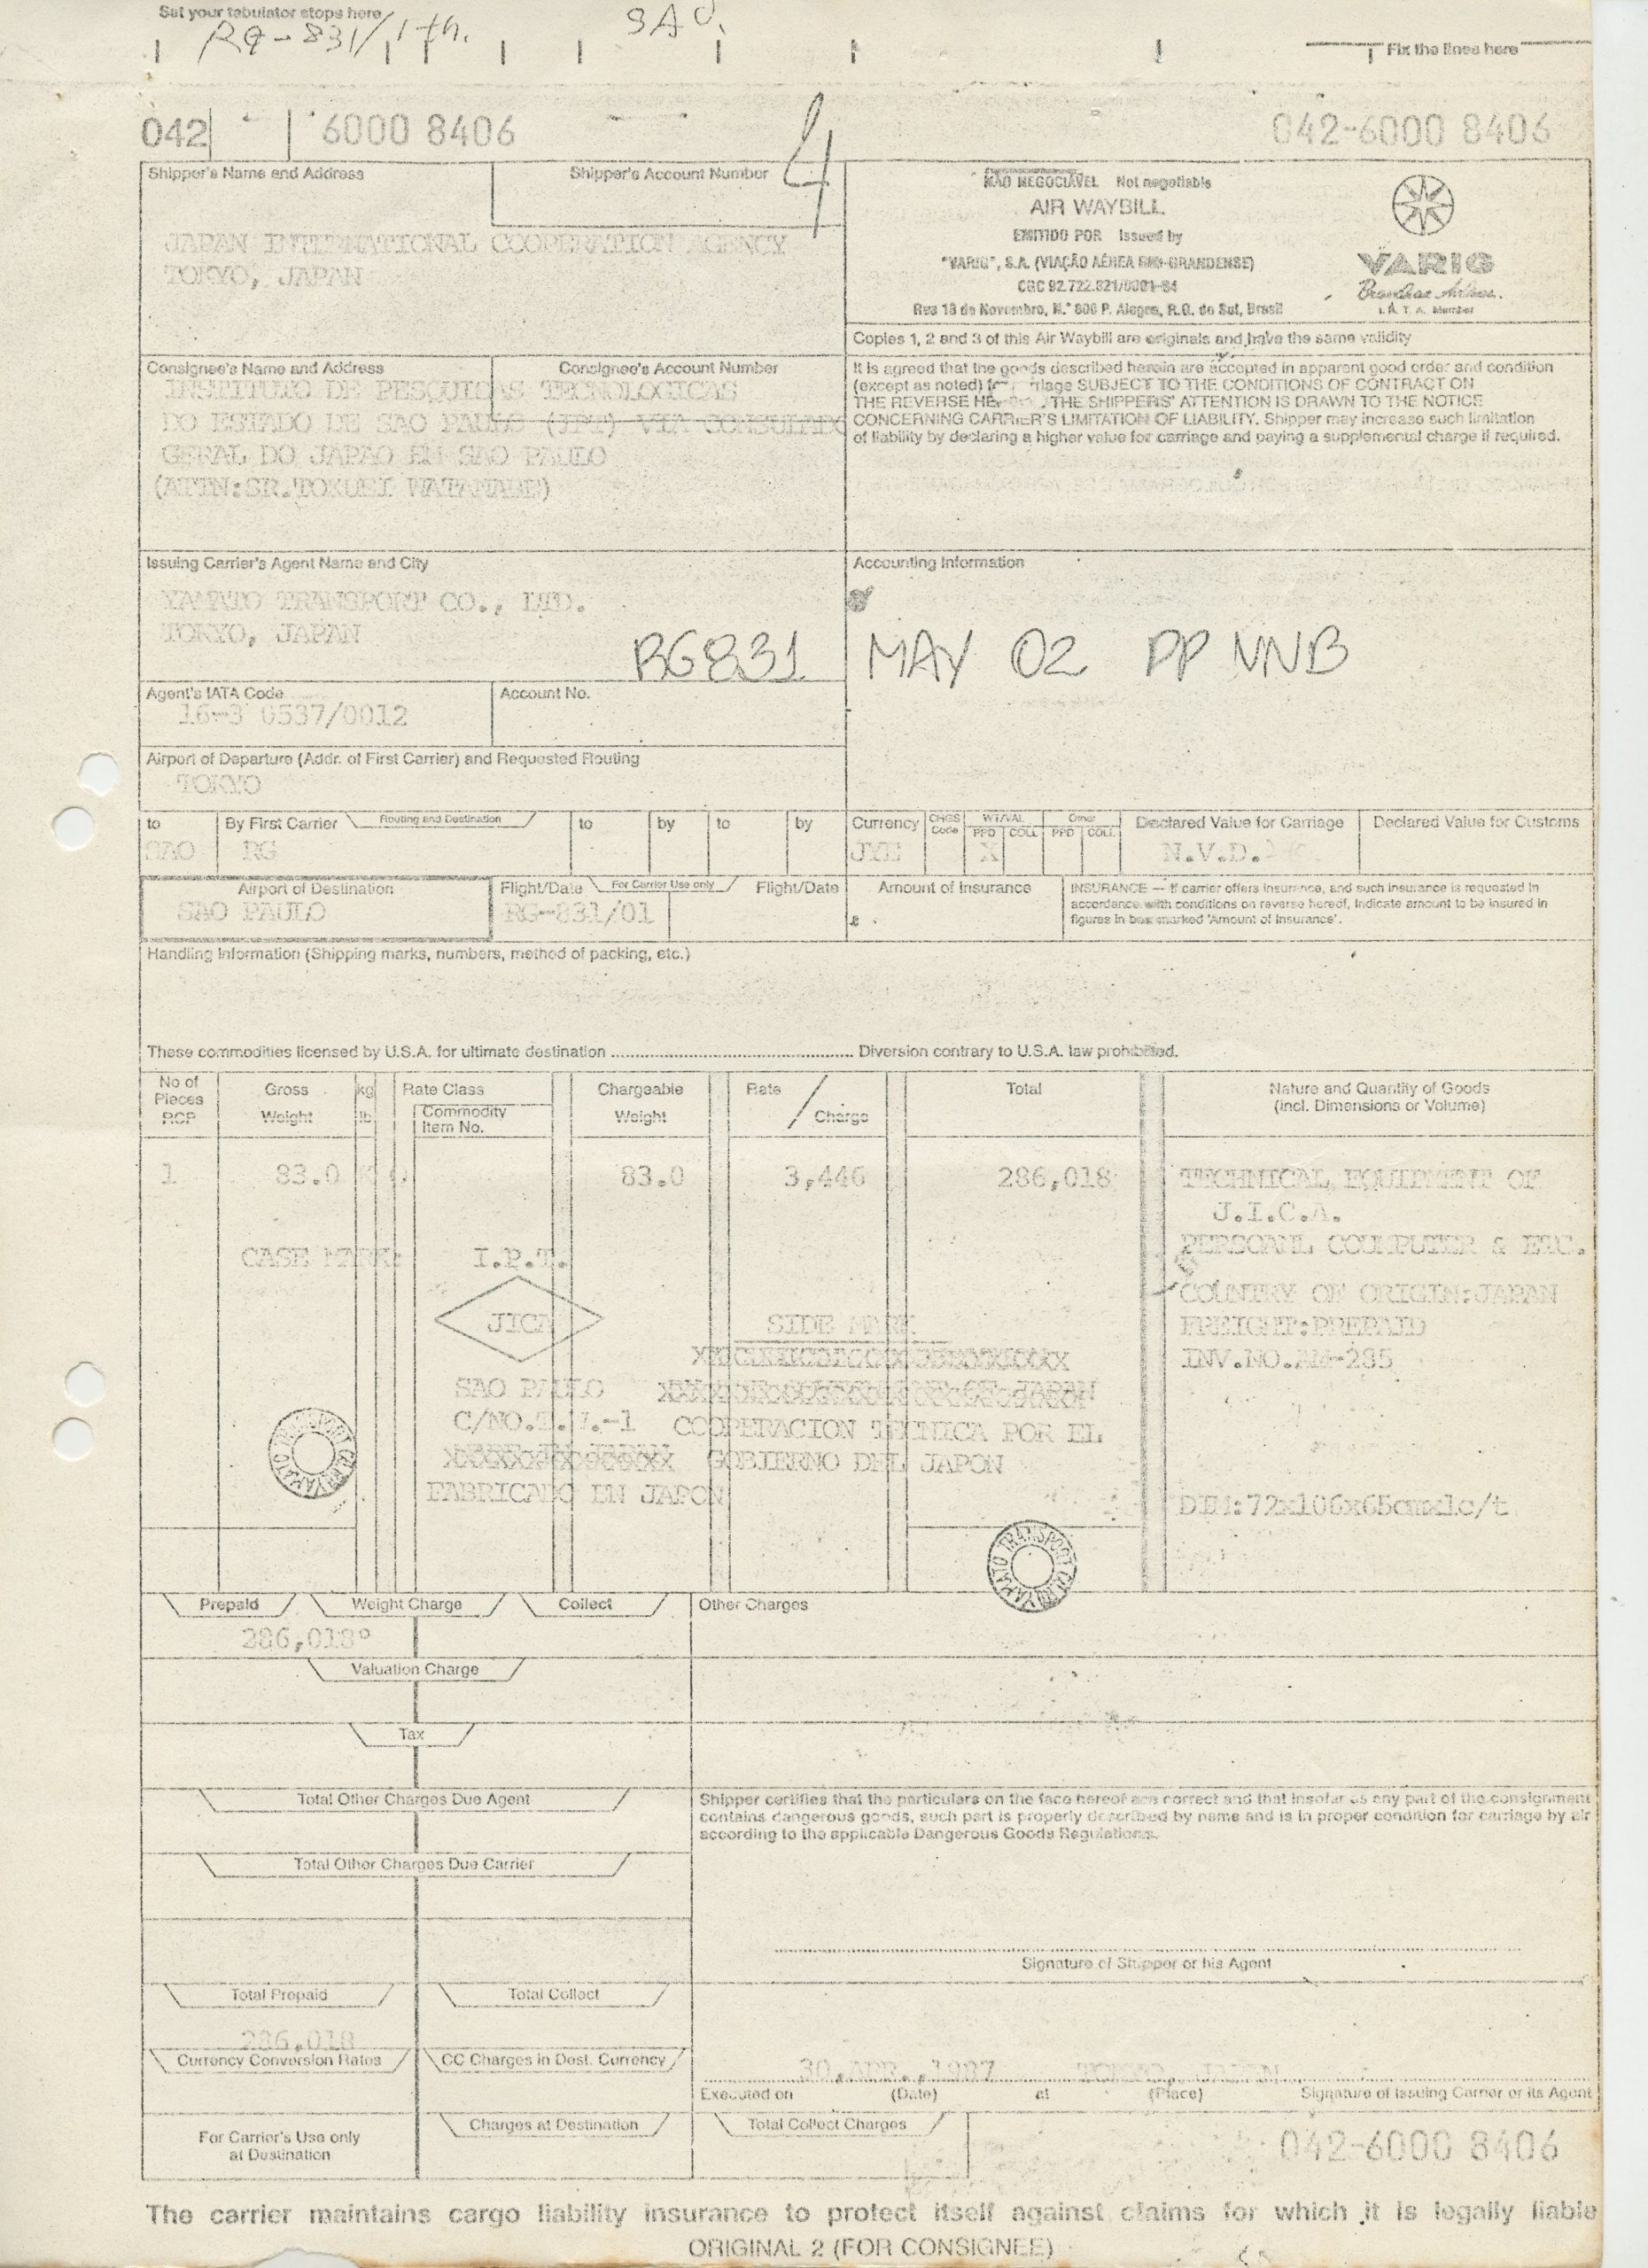 Set your tabulator stops here
RG-831/1th. SAO.
Fix the lines here
042 6000 8406
4
042-6000 8406
Shipper's Name and Address
Shipper's Account Number
JAPAN INTERNATIONAL COOPERATION AGENCY
TOKYO, JAPAN
NÃO NEGOCIÁVEL Not negotiable
AIR WAYBILL
EMITIDO POR Issued by
"VARIG", S.A. (VIAÇÃO AÉREA RIO-GRANDENSE)
CGC 92.722.821/0001-84
Rua 18 de Novembro, N.º 800 P. Alegre, R.G. do Sul, Brasil
VARIG
Brazilian Airlines.
I. A. T. A. Member
Copies 1, 2 and 3 of this Air Waybill are originals and have the same validity
Consignee's Name and Address
Consignee's Account Number
INSTITUTO DE PESQUICAS TECNOLOGICAS
DO ESTADO DE SAO PAULO (IPT) VIA CONSULADO
GERAL DO JAPAO EM SAO PAULO
(ATTN:SR.TOKUEI WATANABE)
It is agreed that the goods described herein are accepted in apparent good order and condition
(except as noted) for carriage SUBJECT TO THE CONDITIONS OF CONTRACT ON
THE REVERSE HEREOF. THE SHIPPERS' ATTENTION IS DRAWN TO THE NOTICE
CONCERNING CARRIER'S LIMITATION OF LIABILITY. Shipper may increase such limitation
of liability by declaring a higher value for carriage and paying a supplemental charge if required.
Issuing Carrier's Agent Name and City
YAMATO TRANSPORT CO., LTD.
TOKYO, JAPAN
Accounting Information
RG831 MAY 02 PP NNB
Agent's IATA Code
16-3 0537/0012
Account No.
Airport of Departure (Addr. of First Carrier) and Requested Routing
TOKYO
to By First Carrier Routing and Destination to by to by
SAO RG
Currency CHGS Code WT/VAL PPD COLL Other PPD COLL Declared Value for Carriage Declared Value for Customs
JYE X N.V.D.
Airport of Destination
SAO PAULO
Flight/Date For Carrier Use only Flight/Date
RG-831/01
Amount of Insurance
INSURANCE — If carrier offers insurance, and such insurance is requested in
accordance with conditions on reverse hereof, indicate amount to be insured in
figures in box marked 'Amount of Insurance'.
Handling Information (Shipping marks, numbers, method of packing, etc.)
These commodities licensed by U.S.A. for ultimate destination .................................................. Diversion contrary to U.S.A. law prohibited.
No of Pieces RCP
Gross Weight
kg lb
Rate Class
Commodity Item No.
Chargeable Weight
Rate / Charge
Total
Nature and Quantity of Goods
(incl. Dimensions or Volume)
1 83.0 K 83.0 3,446 286,018
TECHNICAL EQUIPMENT OF
J.I.C.A.
PERSOANL COUMPUTER & ETC.
COUNTRY OF ORIGIN:JAPAN
FREIGHT:PREPAID
INV.NO.AM-285
DIM:72x106x65cmx1c/t
CASE MARK: I.P.T.
JICA
SIDE MARK
SAO PAULO
C/NO.T.W.-1
COOPERACION TECNICA POR EL
GOBIERNO DEL JAPON
FABRICADO EN JAPON
YAMATO TRANSPORT
YAMATO TRANSPORT
Prepaid Weight Charge Collect
286,018
Other Charges
Valuation Charge
Tax
Total Other Charges Due Agent
Shipper certifies that the particulars on the face hereof are correct and that insofar as any part of the consignment
contains dangerous goods, such part is properly described by name and is in proper condition for carriage by air
according to the applicable Dangerous Goods Regulations.
Total Other Charges Due Carrier
Signature of Shipper or his Agent
Total Prepaid
Total Collect
286,018
Currency Conversion Rates
CC Charges in Dest. Currency
30.APR.,1987 TOKYO, JAPAN
Executed on (Date) at (Place) Signature of Issuing Carrier or its Agent
For Carrier's Use only
at Destination
Charges at Destination
Total Collect Charges
042-6000 8406
The carrier maintains cargo liability insurance to protect itself against claims for which it is legally liable
ORIGINAL 2 (FOR CONSIGNEE)